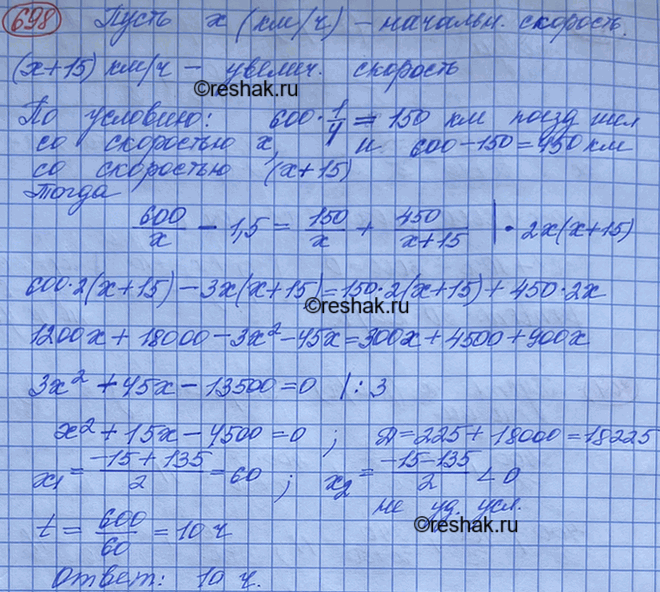 698 Пусть х (км/ч) – начальн. скорость.
(х+15) км/ч – увелич. скорость
©reshak.ru
По условию: 600·1/4 = 150 км поезд шел
со скоростью х, и 600-150=450 км
со скоростью (х+15)
Тогда
600/x - 1,5 = 150/x + 450/(x+15) |·2x(x+15)
600·2(x+15)-3x(x+15)=150·2(x+15)+450·2x
©reshak.ru
1200x+18000-3x²-45x=300x+4500+900x
3x²+45x-13500=0 |:3
x²+15x-4500=0; Д=225+18000=18225
x₁=(-15+135)/2=60; x₂=(-15-135)/2<0
не уд. усл.
t=600/60=10 ч
©reshak.ru
Ответ: 10 ч.